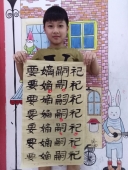 要嫡嗣祀
要嫡嗣祀
要嫡嗣祀
要嫡嗣祀
要嫡嗣祀
要嫡嗣祀